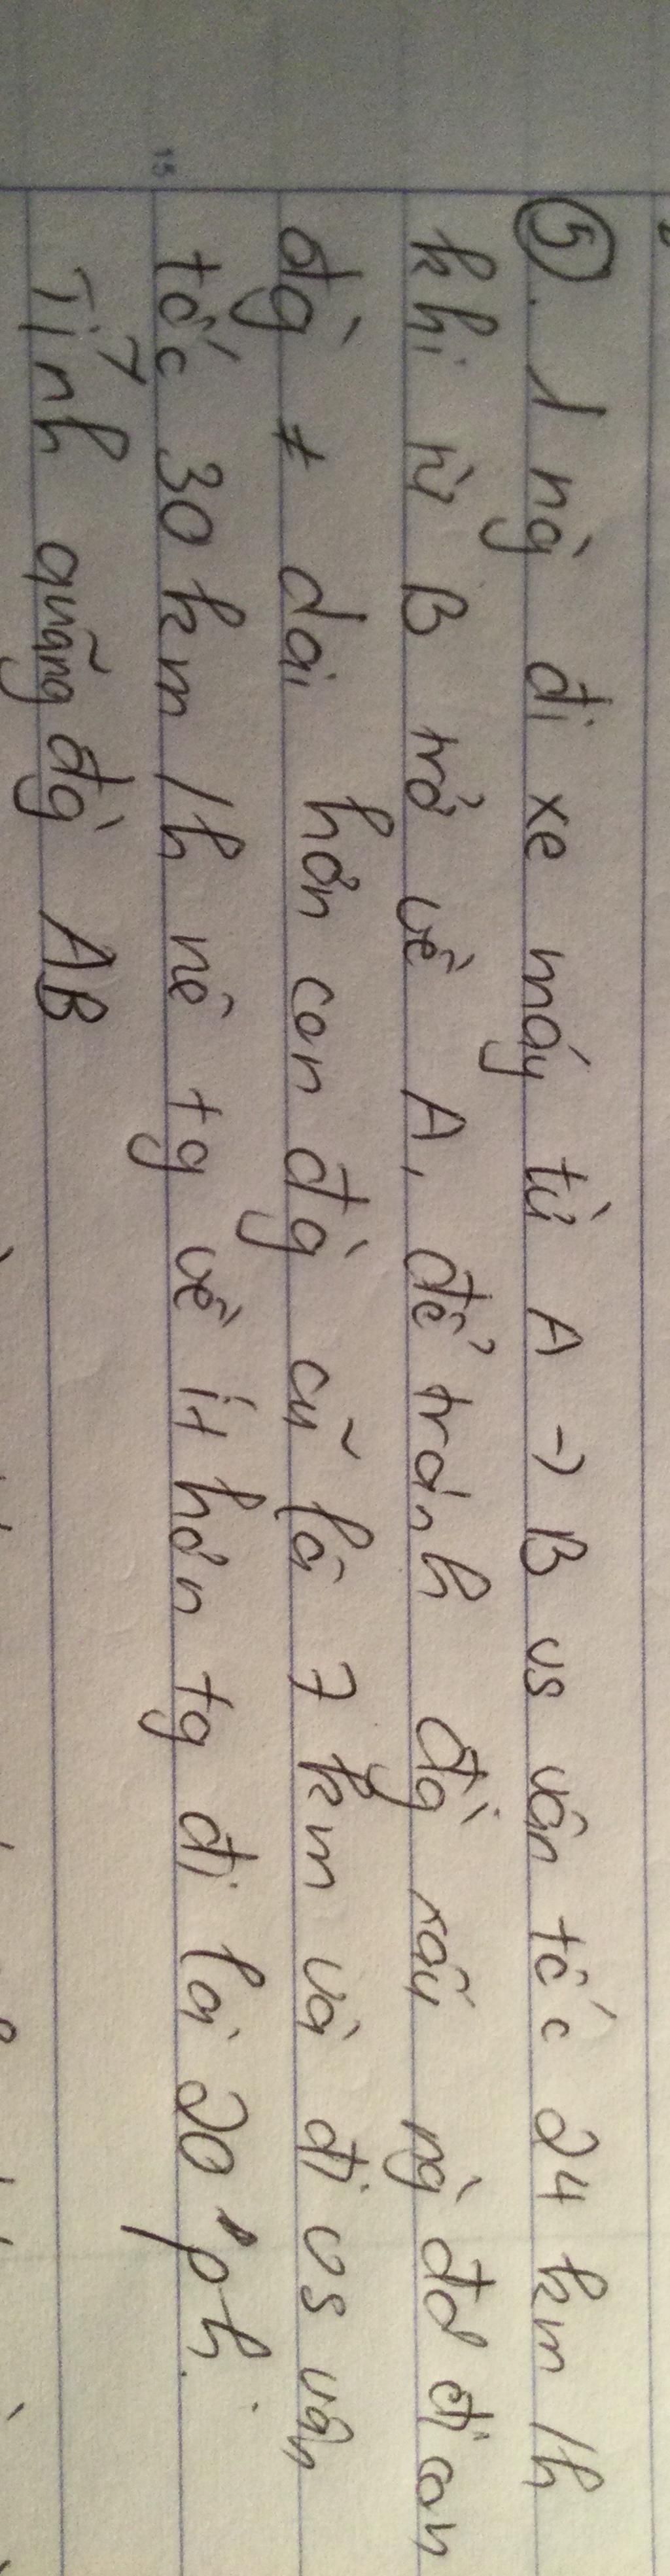 ⑤. 1 ng̀ đi xe máy từ A → B vs vận tốc 24 km/h
khi từ B trở về A, để tránh đg̀ xấu ng̀ đó đi con
đg̀ ≠ dài hơn con đg̀ cũ là 7 km và đi vs vận
tốc 30 km/h nê tg về ít hơn tg đi là 20 ph.
Tính quãng đg̀ AB
15